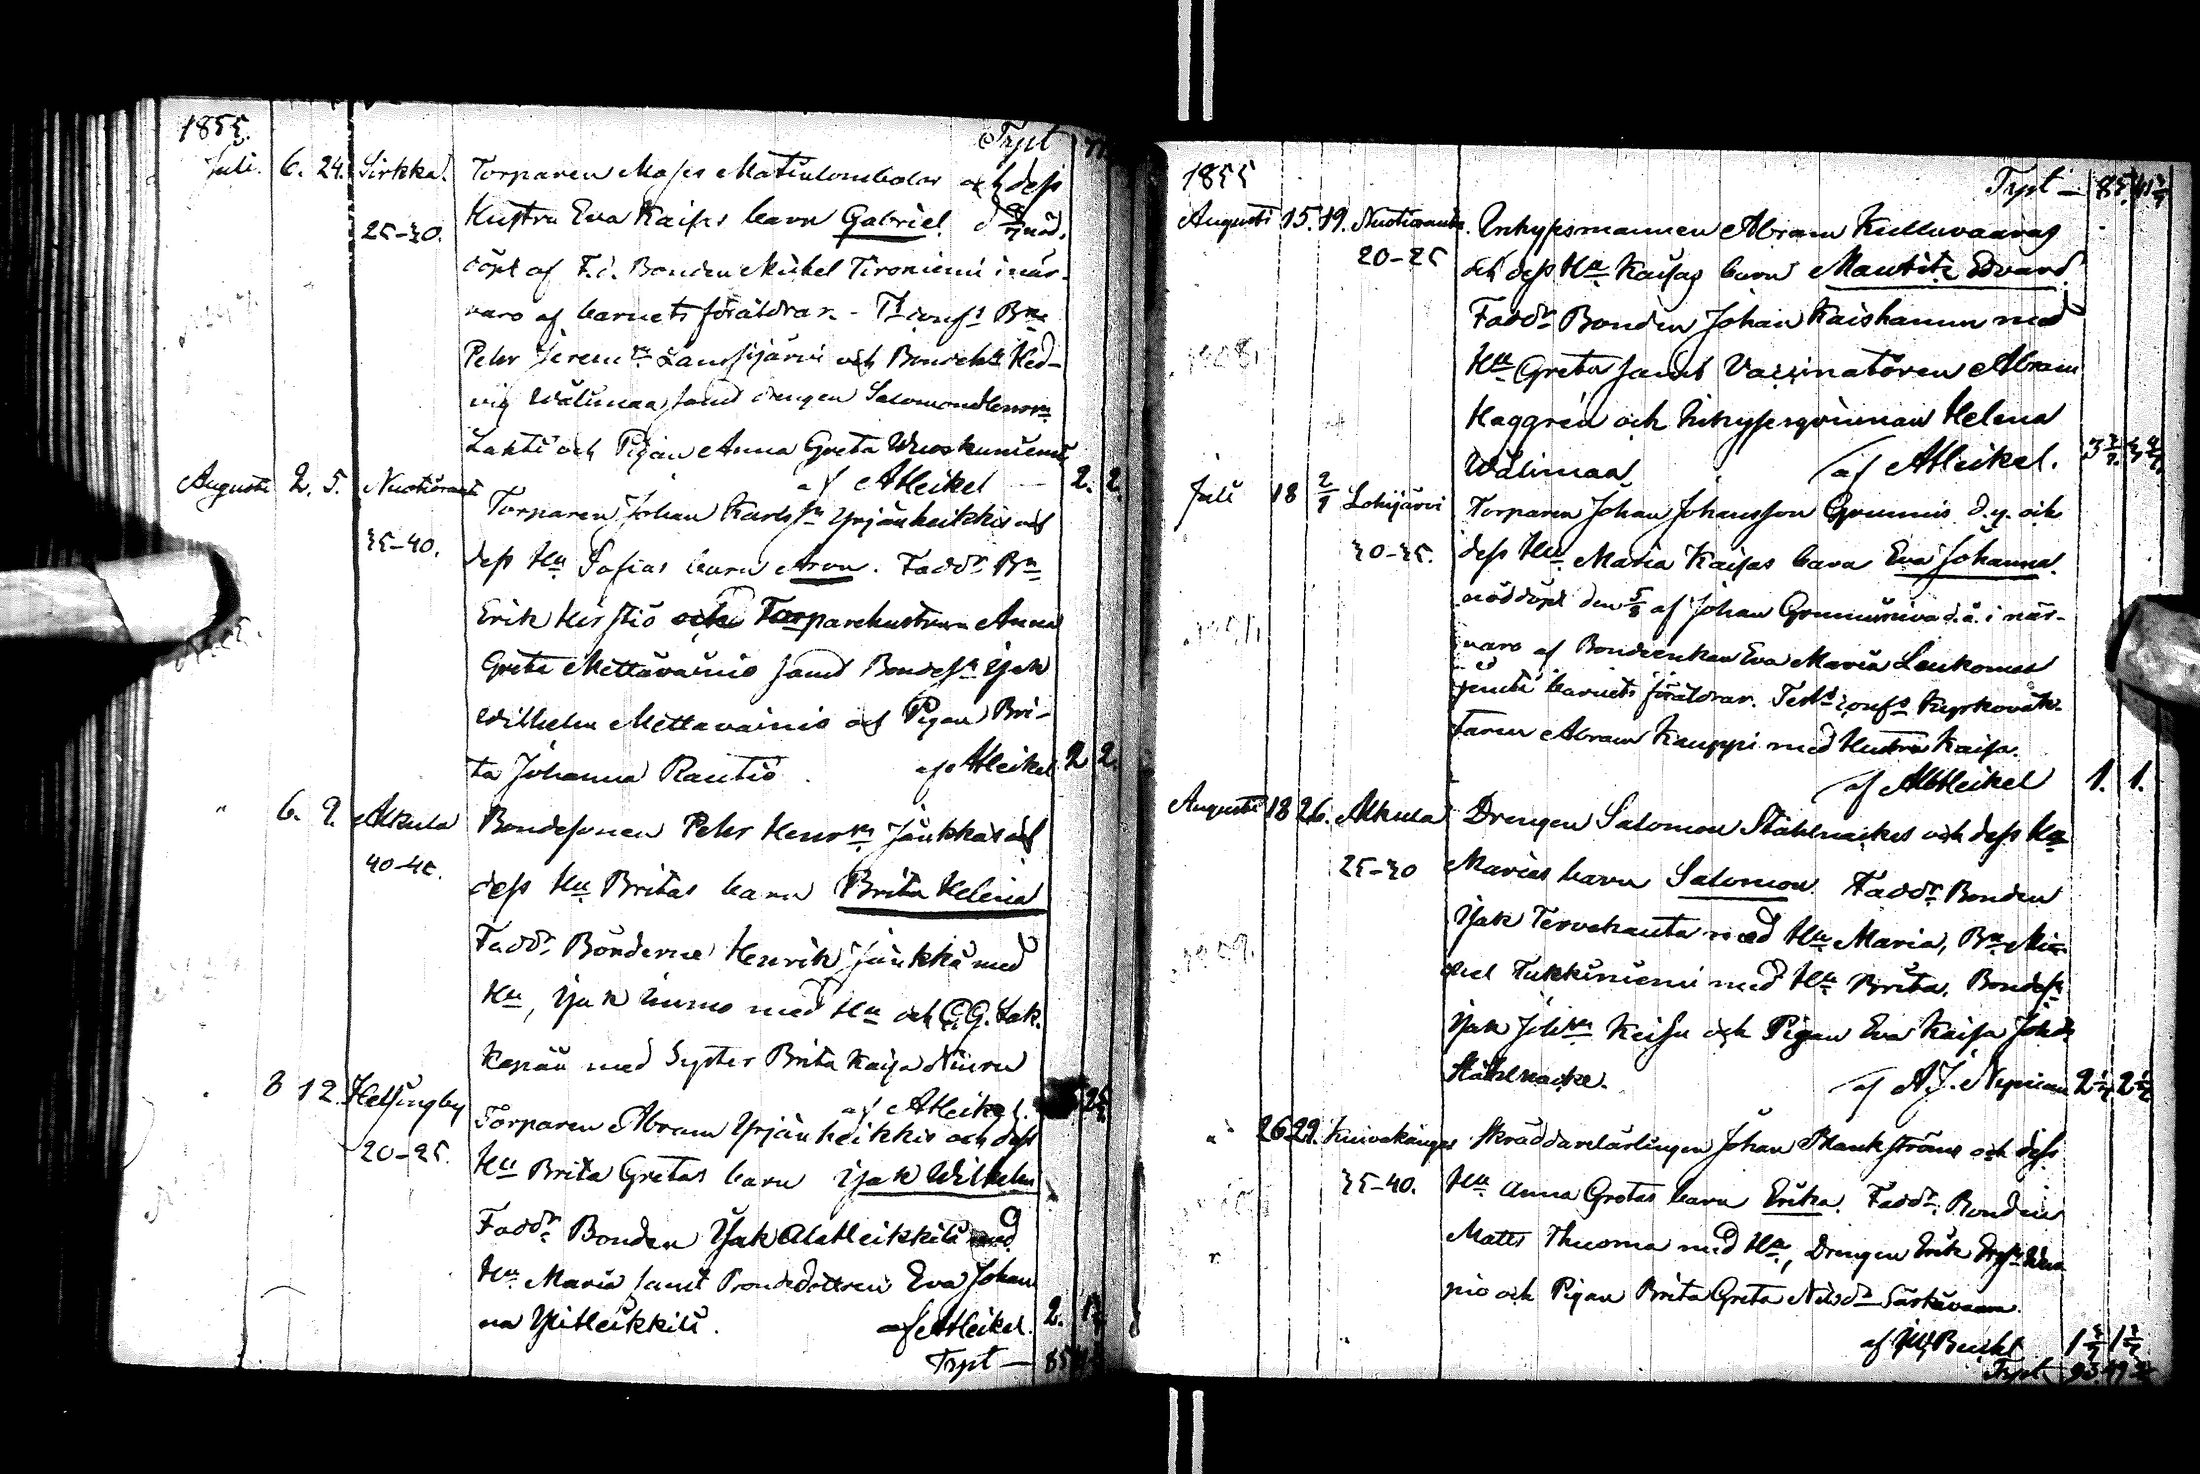 1855.
Trpt
Juli. 6. 24. Sirkka. Torparen Moses Matinlombolos och dess
25-30. Hustru Eva Kaisas barn Gabriel. nöd-
döpt af F. d. Bonden Mickel Tironiemi i när-
varo af barnets föräldrar. - Bn
Petter Jerem. Lanssijärvi och Hed-
vig Wälimaa, samt drengen Salomon Henr.
Lahti och Pigan Anna Greta Wuoskuniemi
af Atleikel 2. 2.
Augusti 2. 5. Nuotioranta Torparen Johan Karlssn Yrjänheikkis och
35-40. dess Hu Sofias barn Aron. Faddr Bn
Erik Kirstiö och Torparehustrun Anna
Greta Mettävainio samt Bondesn Isak
Wilhelm Mettavainio och Pigan Bri-
ta Johanna Rautio. af Atleikel 2 2.
" 6. 9. Alkula Bondesonen Petter Henrssn Junkkas och
40-45. dess Hu Britas barn Brita Helena
Faddr. Bönderne Henrik Junkka med
Hu, Isak Immo med Hu och C. G. Lak-
kapää med Syster Brita Kaisa Niura
af Atleikel.
8 12. Helsingby Torparen Abram Yrjänheikkis och dess
20-25. Hu Brita Gretas barn Isak Wilhelm
Faddr Bonden Isak Alatleikkilä med
Hu Maria samt Bondedottren Eva Johan
na Ylitleikkilä. af Atleikel. 2.
Trpt — 85
1855
Trpt — 85
Augusti 15. 19. Nuotioranta. Inhysesmannen Abram Kulluvaaras
20-25 och dess Hu Kaisas barn Mauritz Edvard
Faddr Bonden Johan Kaishannu med
Hu Greta samt Vaccinatören Abram
Haggrén och Inhysesqvinnan Helena
Wälimaa. af Atleikel.
Juli 18 Lohijärvi Torparen Johan Johansson Grunnis d. y. och
30-35. dess Hu Maria Kaisas barn Eva Johanna.
nöddöpt den 5/8 af Johan d. ä. i när-
varo af Bondeenkan Eva Maria Leukomaa
jemte barnets föräldrar. Kyrkoväk-
taren Abram Kauppi med Hustru Kaisa.
af Atleikel 1. 1.
Augusti 18 26. Alkula Drengen Salomon Ståhlnackes och dess Hu
25-30 Marias barn Salomon. Faddr Bonden
Isak Tervahauta med Hu Maria, Bn Mi-
chel Tukkiniemi med Hu Brita. Bondesn
Isak Johssn Keisu och Pigan Eva Kaisa
Ståhlnacke. af A. J. Nyman
" 26 29. Kuivakangas Skräddarelärlingen Johan Plankströms och dess
35-40. Hu Anna Gretas barn Erika. Faddr. Bonden
Matts Thuoma med Hu, Drengen Erik
pio och Pigan Brita Greta Nilsdr Särkivaara.
af
Trpt